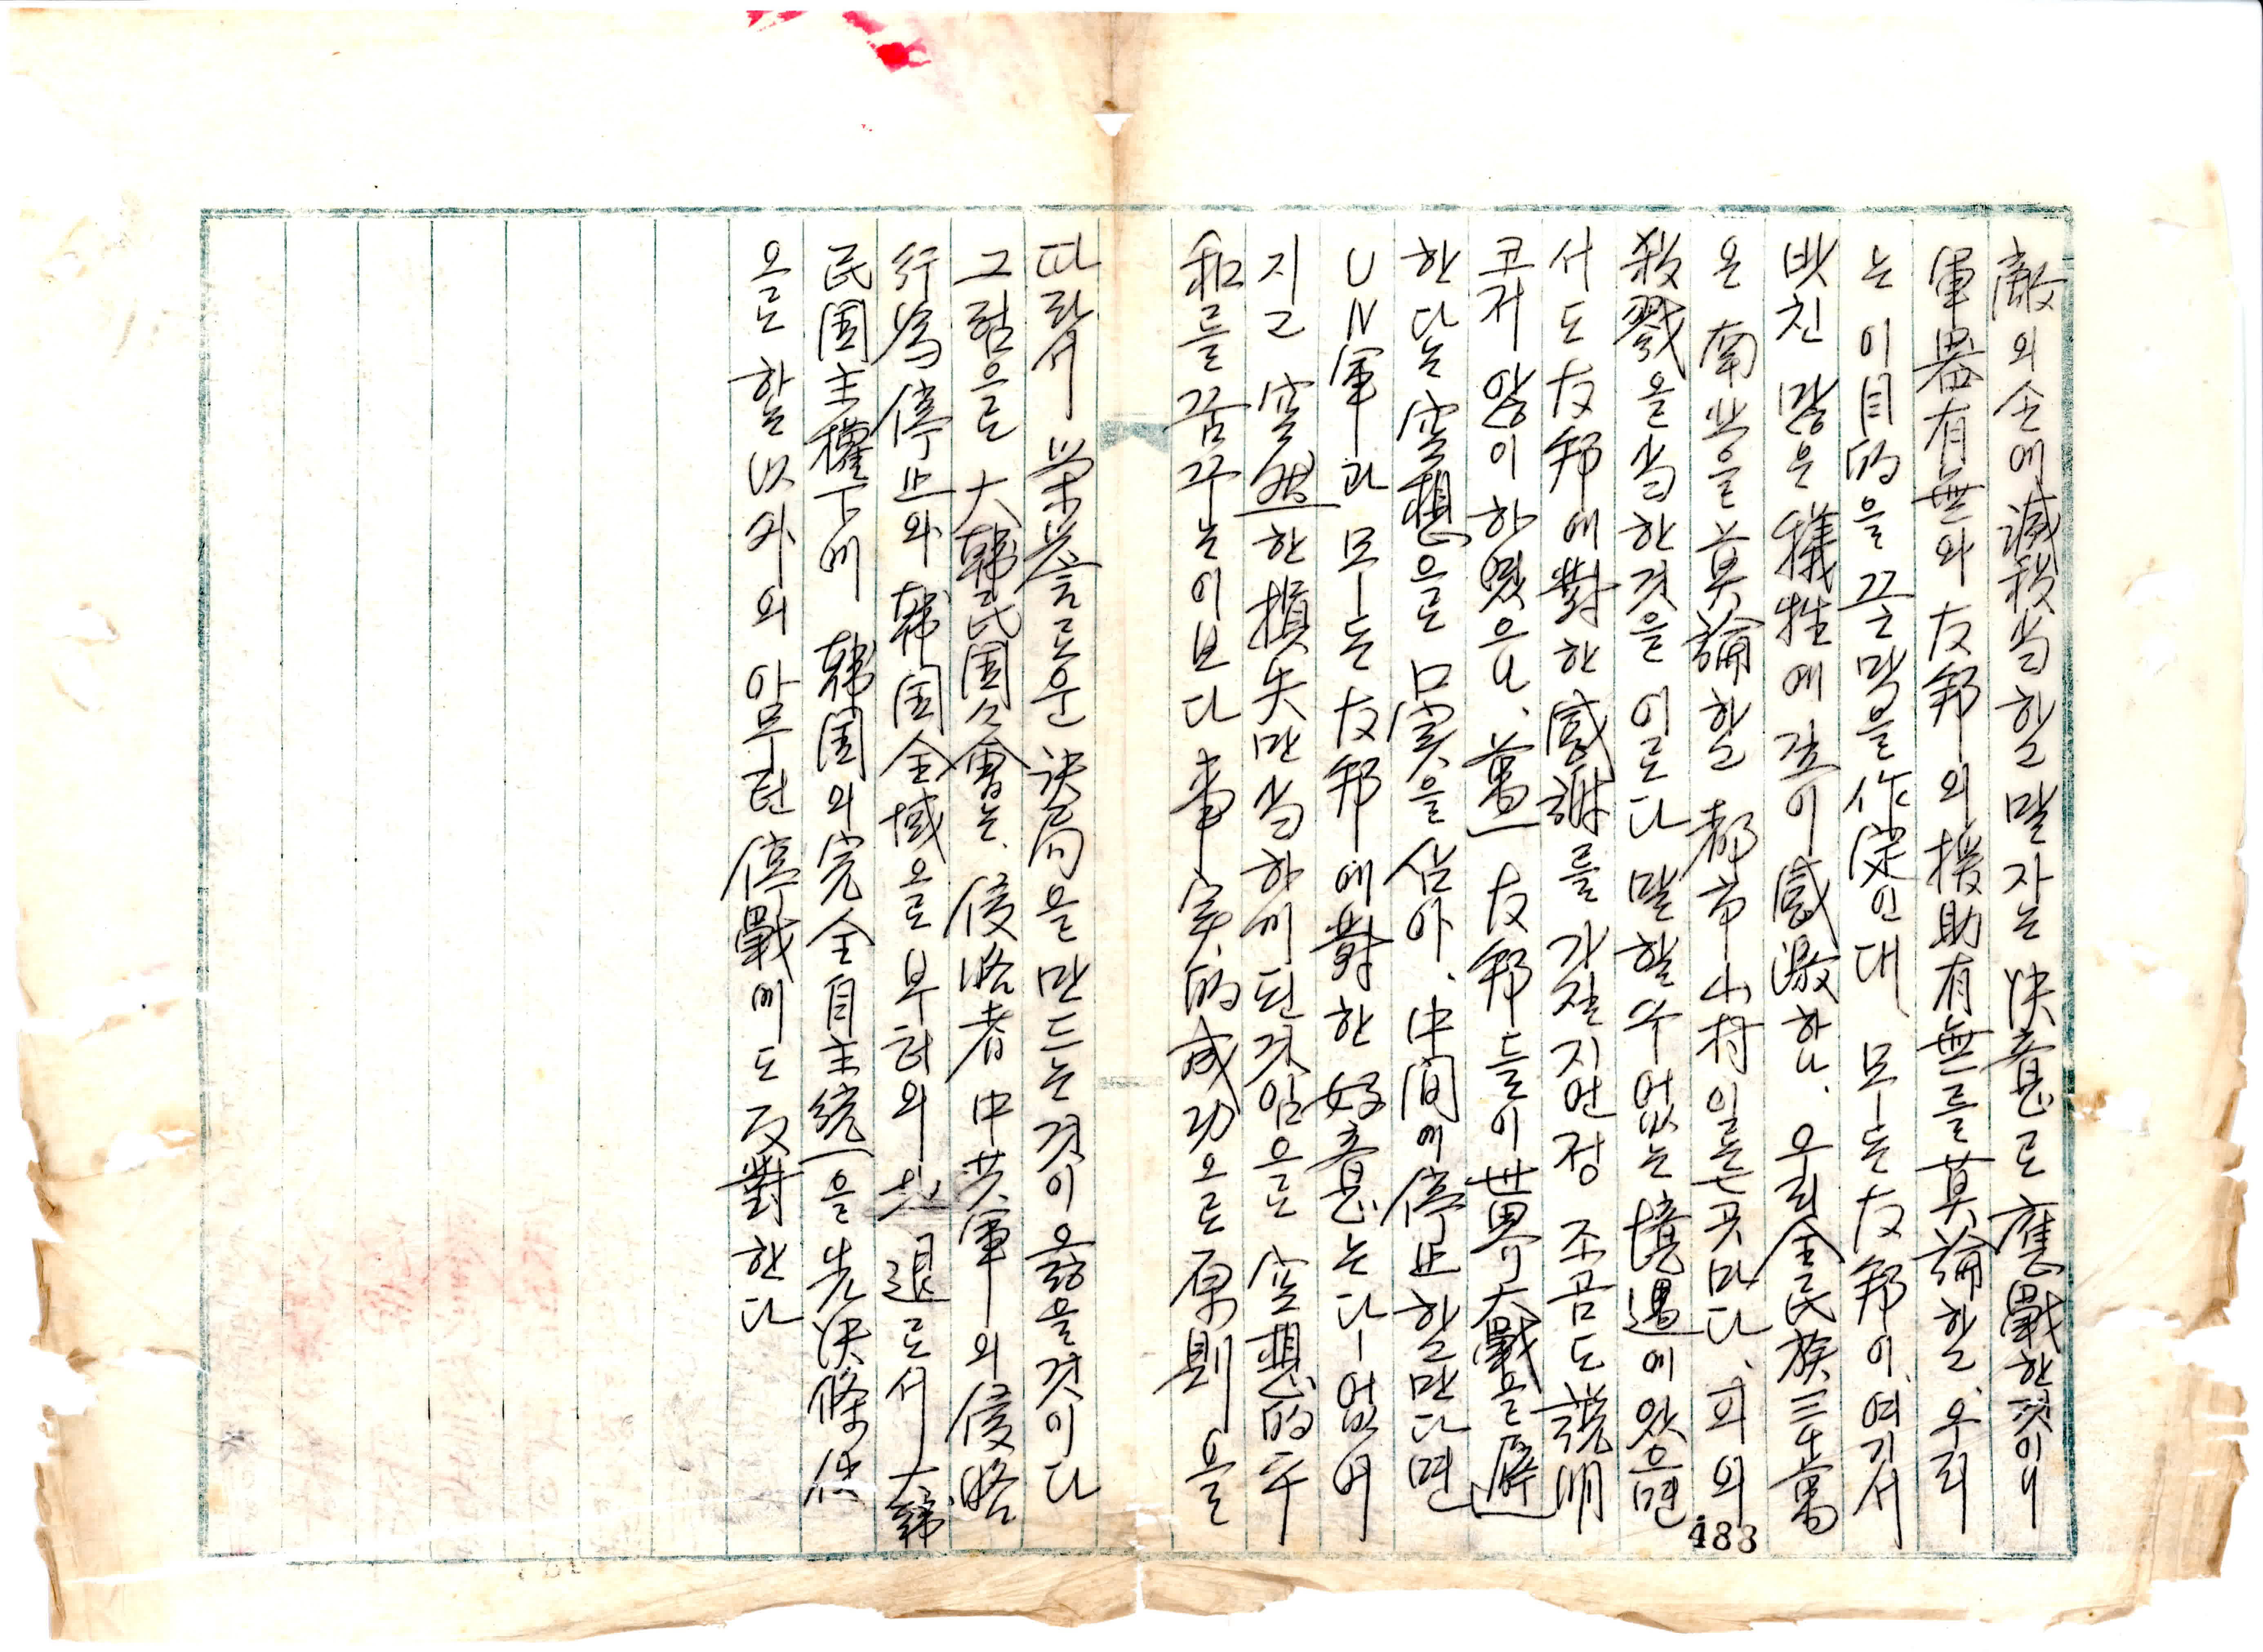 敵의손에滅殺當할말자는 決意로 應戰한것이니
軍器有無와 友邦의 援助有無를 莫論할、우리
는 이目的을 끝막을作定인대 모-든友邦이、여기서
밧친 많은 犧牲에 깊이感激하나、우리全民族三千萬
은 南北을莫論할 都市山村일든곳마다、피의
殺戮을当한것을 일로다 말할수없는 境遇에있으면
서도 友邦에對한感謝를 가질지언정 조금도 説明
코저 않이하였으나、萬一 友邦들이 世界大戰을 避
한다는空想으로 口実을 삼아、中間에停止할만다면
UN軍과 모-든友邦에對한好意는다- 없어
지고 空然한損失만当하게된것임으로 空想的平
和를꿈꾸는이보다 事実的成功으로原則을
따라서 榮譽로운 決局을만드는것이 옳을것이다
그럼으로 大韓民国々會는、侵略者中共軍의侵略
行為停止와 韓国全域으로부터의北退로서 大韓
民国主權下에 韓国의完全自主統一을先決條件
으로 하는以外의 아무런停戰에도 反對한다
483